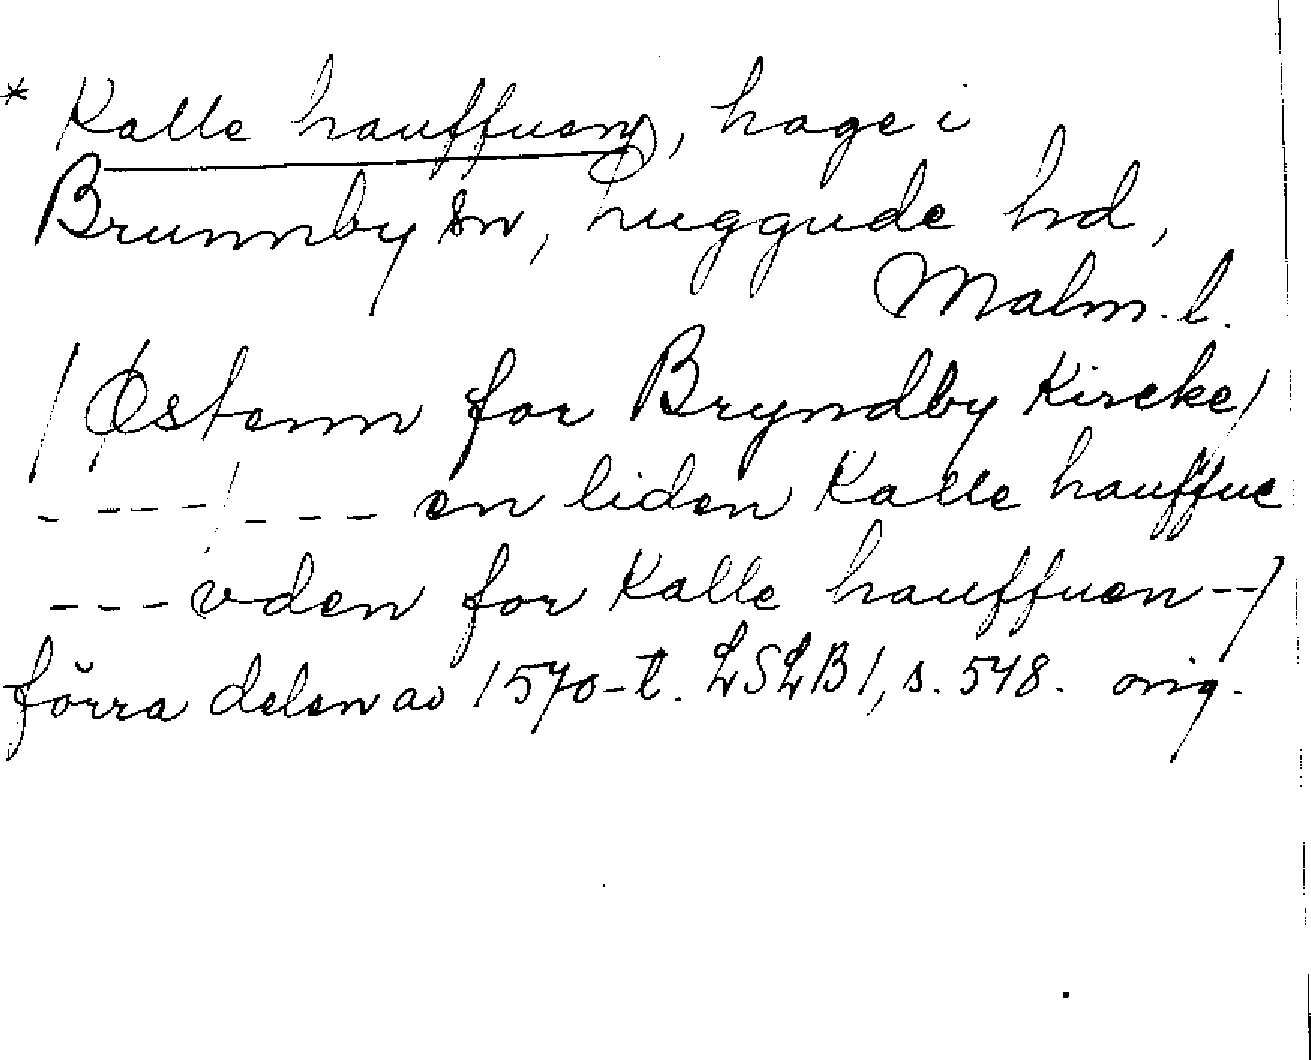 * Kalle hauffuen, hage i
Brunnby sn, Luggude hd,
Malm. l.
/Østenn for Bryndby Kircke/
- - - -/- - - - en liden Kalle hauffue
- - - vden for Kalle hauffuen - -/
förra delen av 1570-t. LSLB 1, s. 548. orig.